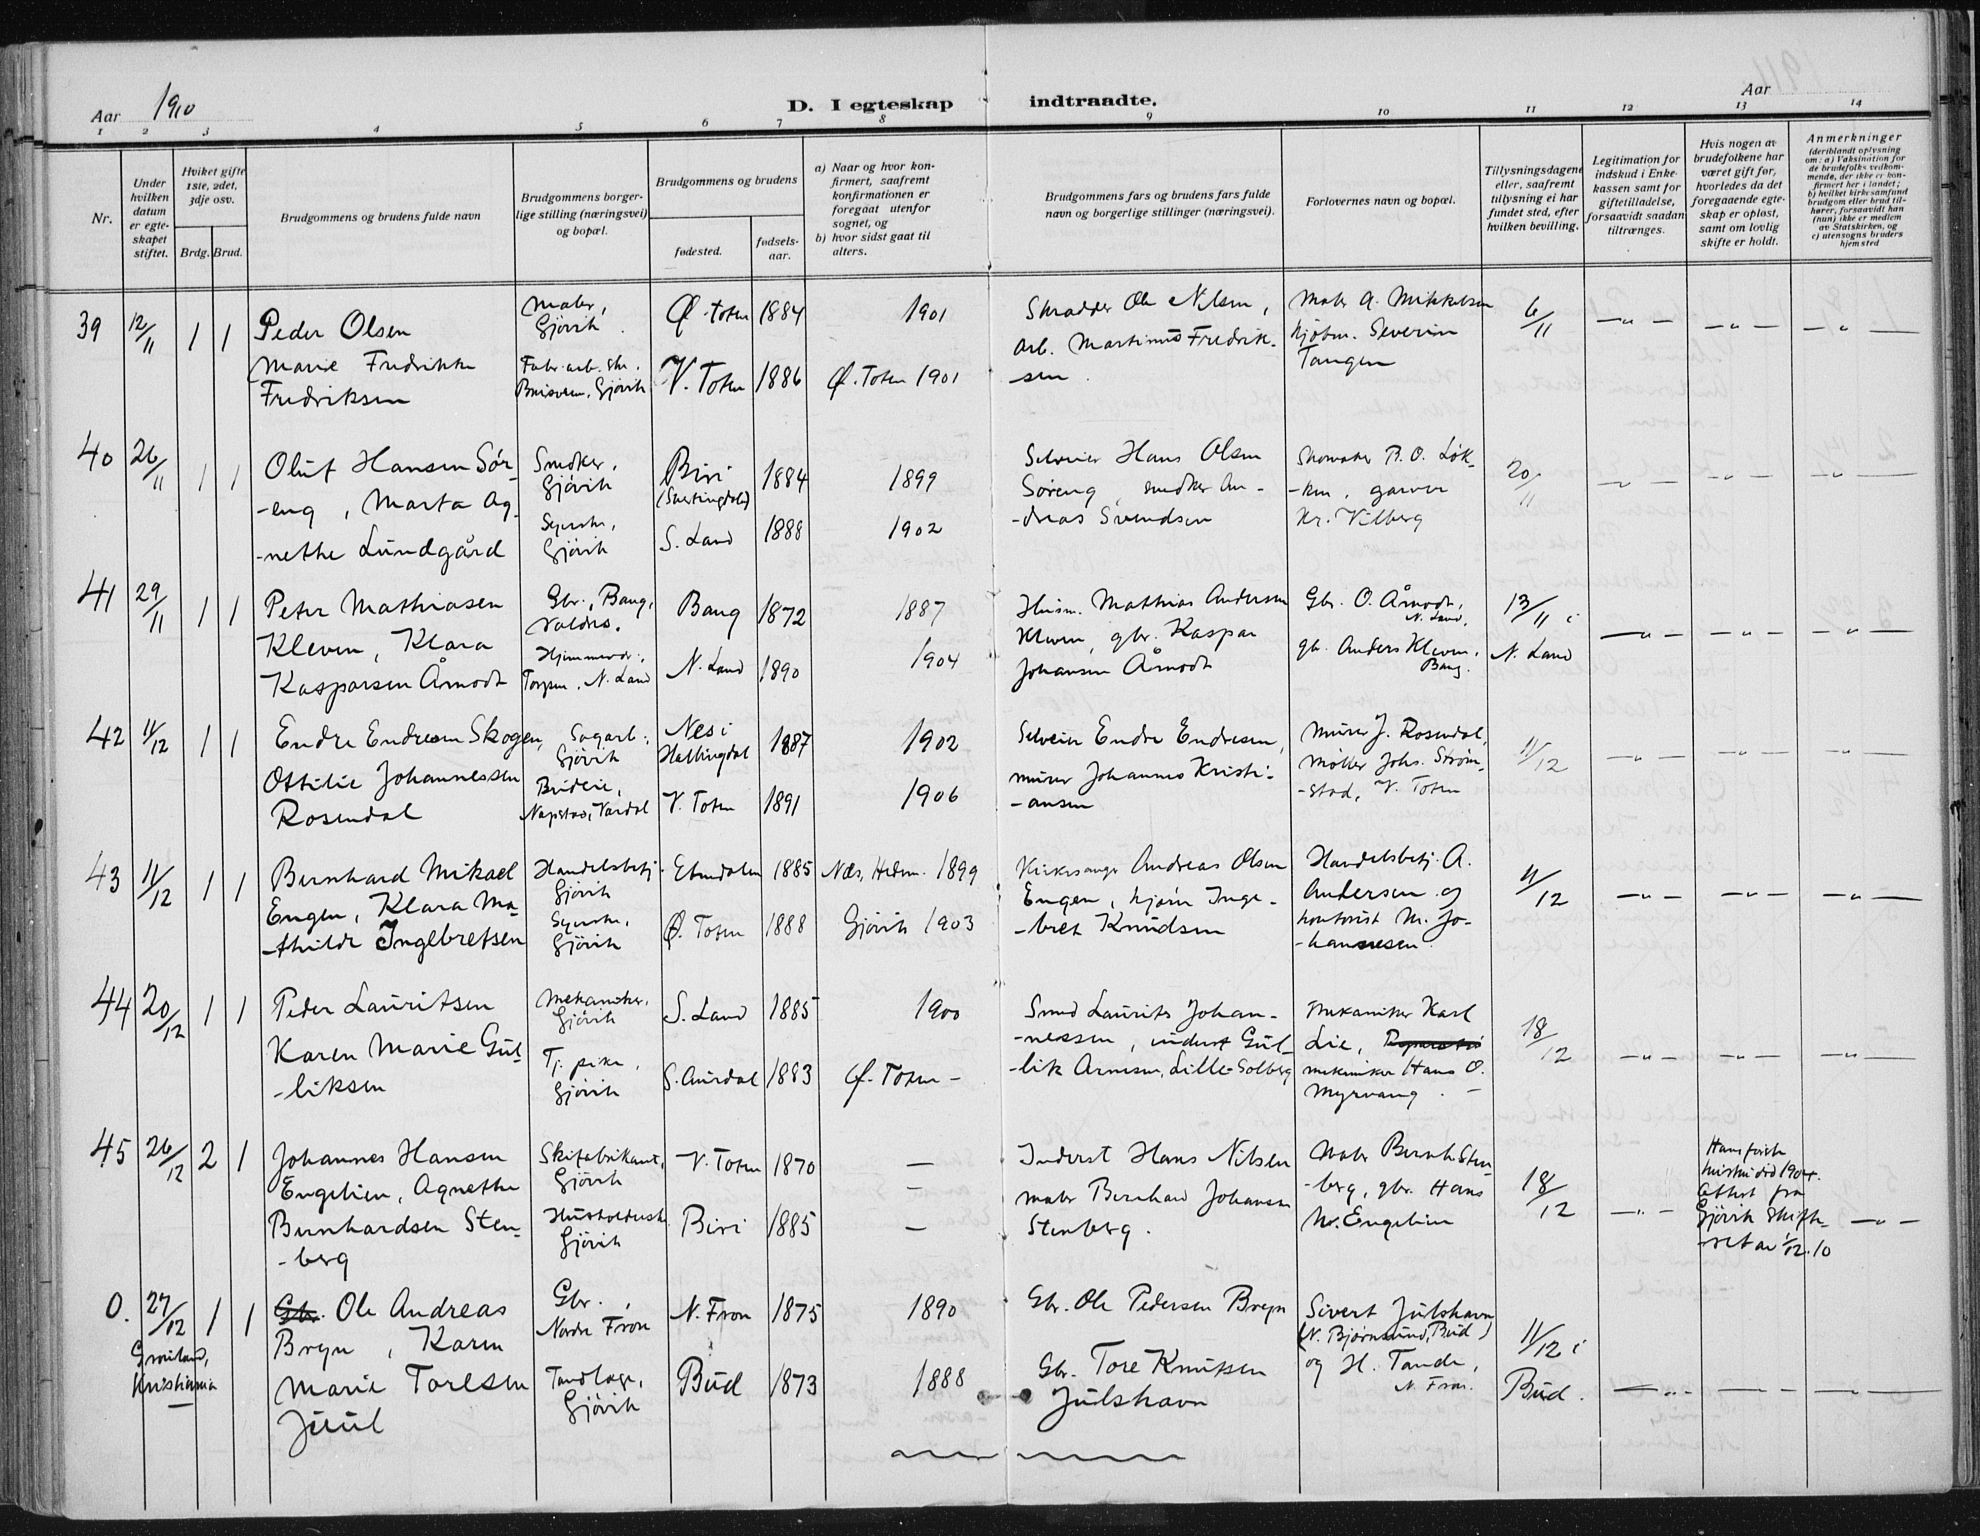 Aar 1910
D. I egteskap indtraadte.
Aar
1 2 3 4 5 6 7 8 9 10 11 12 13 14
Nr.
Under hvilken datum er egte-skapet stiftet.
Hvilket gifte 1ste, 2det, 3dje osv.
Brdg. Brud.
Brudgommens og brudens fulde navn
Brudgommens borger-lige stilling (næringsvei) og bopæl.
Brudgommens og brudens
fødested.
fødsels-aar.
a) Naar og hvor kon-firmert, saafremt konfirmationen er foregaat utenfor sognet, og
b) hvor sidst gaat til alters.
Brudgommens fars og brudens fars fulde navn og borgerlige stillinger (næringsvei).
Forlovernes navn og bopæl.
Tillysningsdagene eller, saafremt tillysning ei har fundet sted, efter hvilken bevilling.
Legitimation for indskud i Enke-kassen samt for giftetilladelse, forsaavidt saadan tiltrænges.
Hvis nogen av brudefolkene har været gift før, hvorledes da det foregaaende egte-skap er opløst, samt om lovlig skifte er holdt.
Anmerkninger
(deriblandt oplysning om: a) Vaksination for de brudefolks vedkom-mende, der ikke er kon-firmert her i landet; b) hvilket kirkesamfund brudgom eller brud til-hører, forsaavidt han (hun) ikke er medlem av Statskirken, og c) utensogns bruders hjemsted
39 12/11 1 1 Peder Olsen
Marie Fredrikke
Fredriksen
Maler,
Gjövik.
Fabr. arb. ske.
Gjövik
Ø. Toten 1884 1901
V. Toten 1886 Ø. Toten 1901
Skrædder Ole Nilsen,
Arb. Martinus Fredrik-
-sen.
Maler A. Mikkelsen
kjøbm. Severin
Tangen
6/11 — " — — " — — " —
40 26/11 1 1 Oluf Hansen Sör-
-eng, Marta Ag-
-nethe Lundgård
Snedker,
Gjövik
Syerske,
Gjövik
Biri 1884 1899
S. Land 1888 1902
Selveier Hans Olsen
Søreng, snedker An-
-dreas Svendsen
Skomaker P. O. Løk-
-ken, garver
Kr. Vilberg
20/11 — " — — " — — " —
41 29/11 1 1 Peter Mathiasen
Kleven, Klara
Kaspersen Åmodt
Gbr., Bang,
Valdres.
Hjemmevær.,
Torpen, N. Land
Bang 1872 1887
N. Land 1890 1904
Husm. Mathias Andersen
Kleven, gbr. Kaspar
Johansen Åmodt
Gbr. O. Åmodt,
N. Land,
gb. Anders Kleven,
Bang.
13/11 i
N. Land
— " — — " — — " —
42 11/12 1 1 Endre Endresen Skogen,
Ottilie Johannessen
Rosendal
Sagarb.,
Gjövik
Budeie,
Vardal
Nes i
Hallingdal 1887 1902
V. Toten 1891 1906
Selveier Endre Endresen,
murer Johannes Kristi-
-ansen
Murer J. Rosendal,
Møller Johs. Strøm-
-stad, V. Toten
11/12 — " — — " — — " —
43 11/12 1 1 Bernhard Mikael
Engen, Klara Ma-
-thilde Ingebretsen
Handelsbetj.
Gjövik
Syerske,
Gjövik
Etnedalen 1885 Næs, Hedm. 1899
Ø. Toten 1888 Gjövik 1903
Kirkesanger Andreas Olsen
Engen, kjører Inge-
-bret Knudsen
Handelsbetj. A.
Andersen og
kontorist M. Jo-
-hannesen.
11/12 — " — — " — — " —
44 20/12 1 1 Peder Lauritsen
Karen Marie Gul-
-liksen
Mekaniker,
Gjövik
Tj. pike,
Gjövik
S. Land 1885 1900
S. Aurdal 1883 Ø. Toten —
Smed Laurits Johan-
-nessen, inderst Gul-
-lik Arnesen, Lille-Solberg
Mekaniker Karl
Lie,
mekaniker Hans O.
Myrvang. —
18/12 — " — — " — — " —
45 26/12 2 1 Johannes Hansen
Engelien, Agnethe
Bernhardsen Sten-
-berg
Skifabrikant,
Gjövik
Husholderske
Gjövik
V. Toten 1870 —
—
Biri 1885 —
Inderst Hans Nilsen
maler Bernhard Johansen
Stenberg.
Maler Bernh. Sten-
-berg, gbr. Hans
N. Engelien
18/12 — " —
Hans første
hustru död 1904.
Attest fra
Gjövik Skifte-
-ret av 1/12.10
— " —
0. 27/12
Grønland,
Kristiania
1 1 Gbr. Ole Andreas
Bryn, Karen
Marie Toresen
Juul
Gbr.,
Nordre Fron
Tandlæge,
Gjövik
N. Fron 1875 1890
Bud 1873 1888
Gbr. Ole Pedersen Bryn
Gbr. Tore Knutsen
Julshavn
Sivert Julshavn
(N. Bjørnsund, Bud)
og H. Tande,
N. Fron.
11/12 i
Bud.
— " — — " — — " —